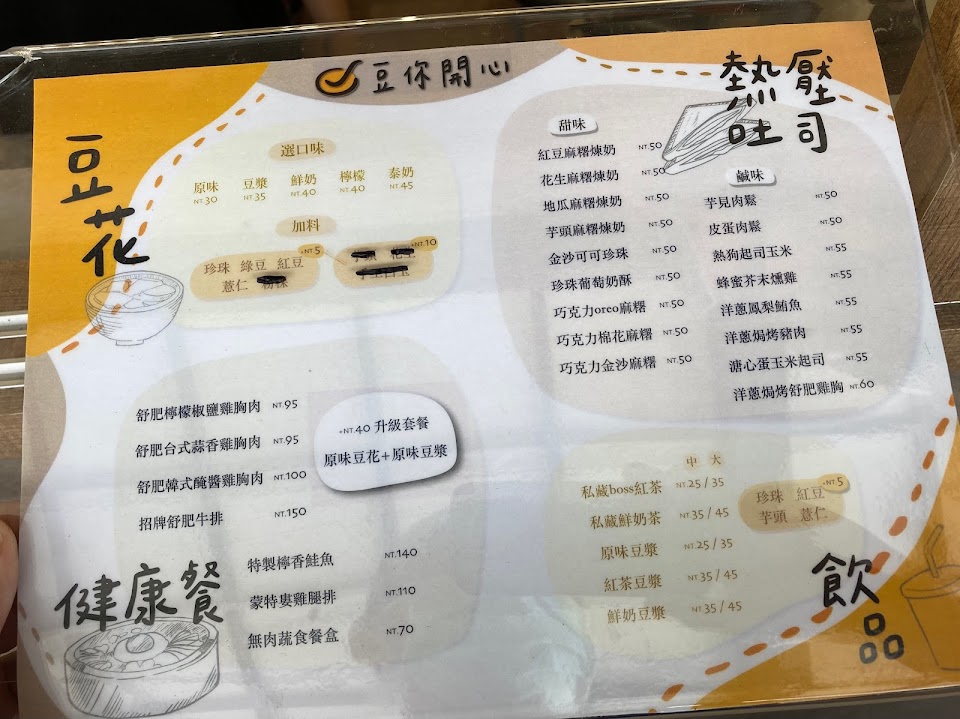 豆你開心
豆花
選口味
原味 豆漿 鮮奶 檸檬 泰奶
NT.30 NT.35 NT.40 NT.40 NT.45
加料
+NT.5
珍珠 綠豆 紅豆
薏仁
+NT.10
熱壓吐司
甜味
紅豆麻糬煉奶 NT.50
花生麻糬煉奶 NT.50
地瓜麻糬煉奶 NT.50
芋頭麻糬煉奶 NT.50
金沙可可珍珠 NT.50
珍珠葡萄奶酥 NT.50
巧克力oreo麻糬 NT.50
巧克力棉花麻糬 NT.50
巧克力金沙麻糬 NT.50
鹹味
芋見肉鬆 NT.50
皮蛋肉鬆 NT.50
熱狗起司玉米 NT.55
蜂蜜芥末燻雞 NT.55
洋蔥鳳梨鮪魚 NT.55
洋蔥焗烤豬肉 NT.55
溏心蛋玉米起司 NT.55
洋蔥焗烤舒肥雞胸 NT.60
健康餐
舒肥檸檬椒鹽雞胸肉 NT.95
舒肥台式蒜香雞胸肉 NT.95
舒肥韓式醃醬雞胸肉 NT.100
招牌舒肥牛排 NT.150
特製檸香鮭魚 NT.140
蒙特婁雞腿排 NT.110
無肉蔬食餐盒 NT.70
+NT.40 升級套餐
原味豆花+原味豆漿
飲品
中 大
私藏boss紅茶 NT.25 / 35
私藏鮮奶茶 NT 35 / 45
原味豆漿 NT.25 / 35
紅茶豆漿 NT 35 / 45
鮮奶豆漿 NT 35 / 45
+NT.5
珍珠 紅豆
芋頭 薏仁